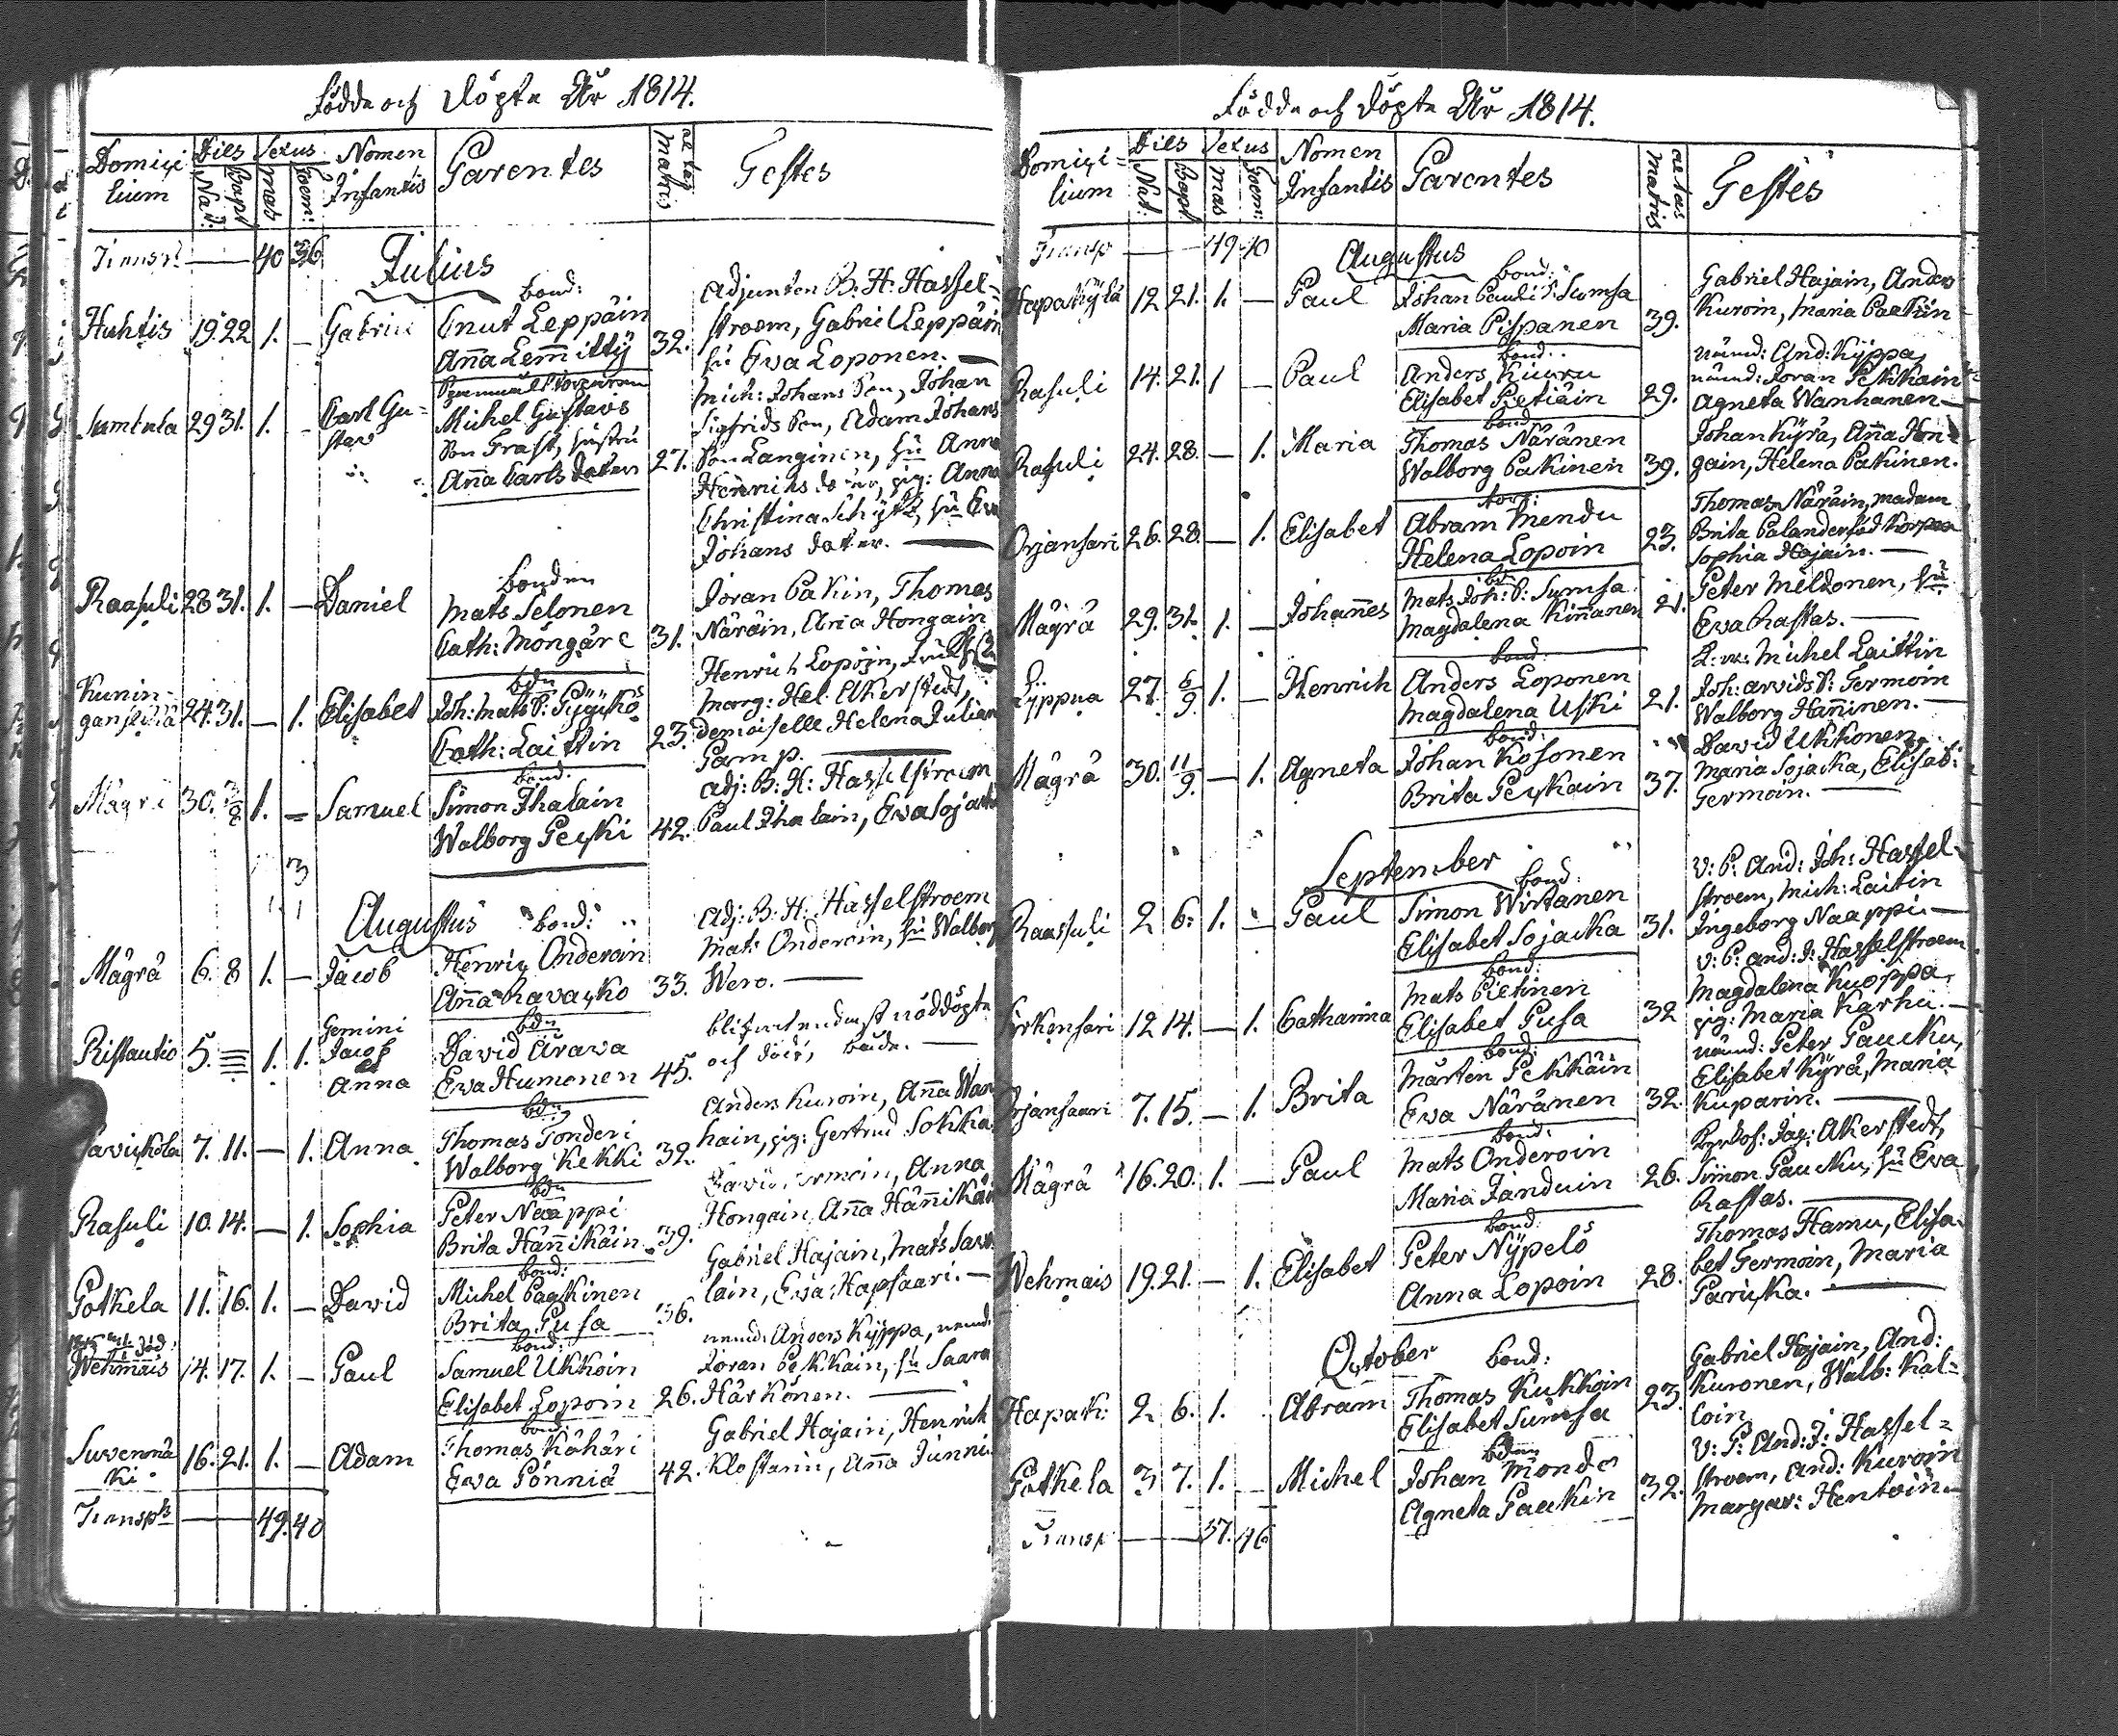 Födde och Döpte År 1814.
Domici
lium
Dies
Nat:
Bapt
Sexus
mas
Foem:
Nomen
Infantis
Parentes
aetas
Matris
Testes
Transpt — — 40 36
Julius
bond:
Huhtis 19. 22 1. — Gabriel Cnut Leppäin
Anna Lemmitty 32.
Adjuncten B: H: Hassel-
stroem, Gabriel Leppäin
hu Eva Loponen. —
Sumbula 29 31. 1. — Carl Gu-
stav
Michel Gustavs
Son Frast, hustru
Anna Carls doter 27.
Mich: Johans Son, Johan
Sigfrids Son, Adam Johans
Son Langinen, hu Anna
Henriks doter, pig: Anna
Christina Schytz, hu Eva
Johans doter. —
Raasuli 28 31. 1. — Daniel bonden
Mats Selonen
Cath: Mongäre 31.
Joran Pakin, Thomas
Näräin, Aria Hongain
Kunin-
ganristi 24. 31. — 1. Elisabet bdn
Joh: Mats S: Pyykö
Cath: Laittin 23.
Henrich Lopoin,
Marg: Hel. Akerstedt,
demoiselle Helena Julian
Pamp. —
Mägrä 30. 3/8 1. — Samuel bond.
Simon Ihalain
Walborg Peuski 42.
adj: B: H: Hasselstroem
Paul Ihalain, Eva Sojacka
Augustus bond:
Mägrä 6. 8 1. — Jacob Henric Onderoin
Anna Ravasko 33.
Adj: B: H: Hasselstroem
Mats Onderoin, hu Walborg
Wero. —
Ristautio 5. 1. 1. Gemini
Jacob
et
Anna
bdn
David Ärawa
Eva Humonen 45.
nöddöpte
och döde, både. —
7. 11. — 1. Anna bdn
Thomas Tonderi
Walborg Kekki 32.
Anders Kuroin, Anna Wan
hain, pig: Gertrud Sokka
Rasuli 10. 14. — 1. Sophia bdn
Peter Naappi
Brita Hännikäin 39.
David Germoin, Anna
Hongain, Anna Hännikäi
Potkela 11. 16. 1. — David bond:
Michel Paaskinen
Brita Pusa 36.
Gabriel Hajain, Mats Sav
lain, Eva Hapsaari. —
Wehmais 14. 17. 1. — Paul bond:
Samuel Ukkoin
Elisabet Lopoin 26.
nämd: Anders Kyppa, nemd:
Joran Pekkain, hu Saara
Härkönen. —
Suvenmä
ki 16. 21. 1. — Adam bond:
Thomas Kähäri
Eva Pönniä 42.
Gabriel Hajain, Henrich
Klostarin, Anna Junni
Transpt — — 49. 40
Födde och Döpte År 1814.
Domici-
lium
Dies
Nat:
Bapt
Sexus
mas
Foem:
Nomen
Infantis
Parentes
aetas
Matris
Testes
Transp — — 49 40
Augustus
bond:
Hapakylä 12 21. 1. — Paul Johan Pauli S: Sumsa
Maria Pispanen 39.
Gabriel Hajain, Anders
Kuroin, Maria Paekin
Rasuli 14. 21. 1 — Paul bond:
Anders Kiuru
Elisabet Pietiäin 29.
nämd: And: Kyppa,
nämd: Joran Pekkain
Agneta Wanhanen —
Rasuli 24. 28. — 1. Maria bond
Thomas Näränen
Walborg Pakinen 39.
Johan Kyrä, Anna Hon-
gain, Helena Pakinen.
Orjansari 26. 28. — 1. Elisabet torp:
Abram Mendu
Helena Lopoin 23.
Thomas Näräin, madam
Brita Palander född Korpea
Sophia Hajain. —
Mägrä 29. 31. 1. — Johannes bd
Mats Joh: S: Sumsa
Magdalena Kinnanen 21.
Peter Meldonen, hu
Eva Rastas. —
Kyppua 27. 6/9 1. — Henrich bond:
Anders Loponen
Magdalena Uski 21.
Michel Laittin
Joh: Arvids S: Germoin
Walborg Hänninen. —
Mägrä 30. 11/9. — 1. Agneta bond:
Johan Kosonen
Brita Peuskain 37.
David Ukkonen,
Maria Sojacka, Elisab:
Germoin. —
September bond:
Raasuli 2 6. 1. — Paul Simon Wirtanen
Elisabet Sojacka 31.
v: P: And: Joh: Hassel-
stroem, Mich: Laitin
Ingeborg Naappi. —
12 14. — 1. Catharina bond:
Mats Pietinen
Elisabet Pusa 32
v: P: and: J: Hasselstroem
Magdalena Kuoppa,
pig: Maria Karhu. —
Orjansaari 7. 15. — 1. Brita bond:
Mårten Pekkäin
Eva Näränen 32.
nämd: Peter Paucku,
Elisabet Kyrä, Maria
Kuparin. —
Mägrä 16. 20. 1. — Paul bond:
Mats Onderoin
Maria Janduin 26.
Jac: Akerstedt,
Simon Paucku, hu Eva
Rastas. —
Wehmais 19. 21. — 1. Elisabet bond:
Peter Nypelö
Anna Lopoin 28.
Thomas Hamu, Elisa
bet Germoin, Maria
Paricka. —
October bond:
Hapak: 2 6. 1. Abram Thomas Kukkoin
Elisabet Sumsa 23.
Gabriel Hajain, And:
Kuronen, Walb: Kal-
loin
Potkela 3 7. 1. — Michel bdn
Johan Mondo
Agneta Paukin 32.
v: P: And: J: Hassel-
stroem, And: Kuroin
Margar: Hentoin. —
Transp — — 57. 46